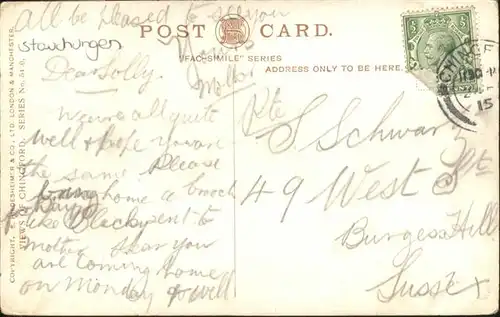 all be pleased to see you
Stawhurgen
POST CARD.
"FAC-SIMILE" SERIES
ADDRESS ONLY TO BE HERE.
Yours
Mother
Dear Solly.
We are all quite
well & hope you are
the same Please
bring home a brooch
like Blacky sent to
mother I hear you
are coming home
on Monday & well
Pte
S Schwarz
49 West Str
Burgess Hill
Sussex
CHINGF
15
COPYRIGHT. & CO., LTD. LONDON & MANCHESTER.
VIEWS OF CHINGFORD. SERIES No.